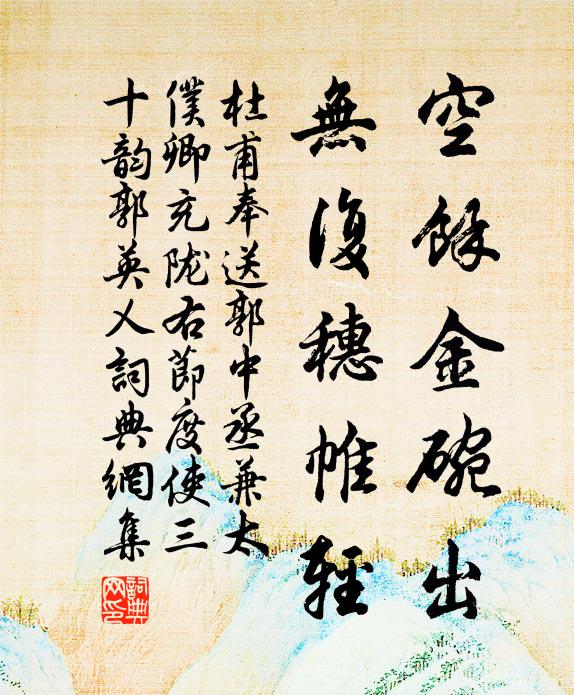 空餘金碗出
無復穗帷輕
杜甫奉送郭中丞兼太
僕卿充陇右節度使三
十韵郭英乂詞典網集
詞典
网印